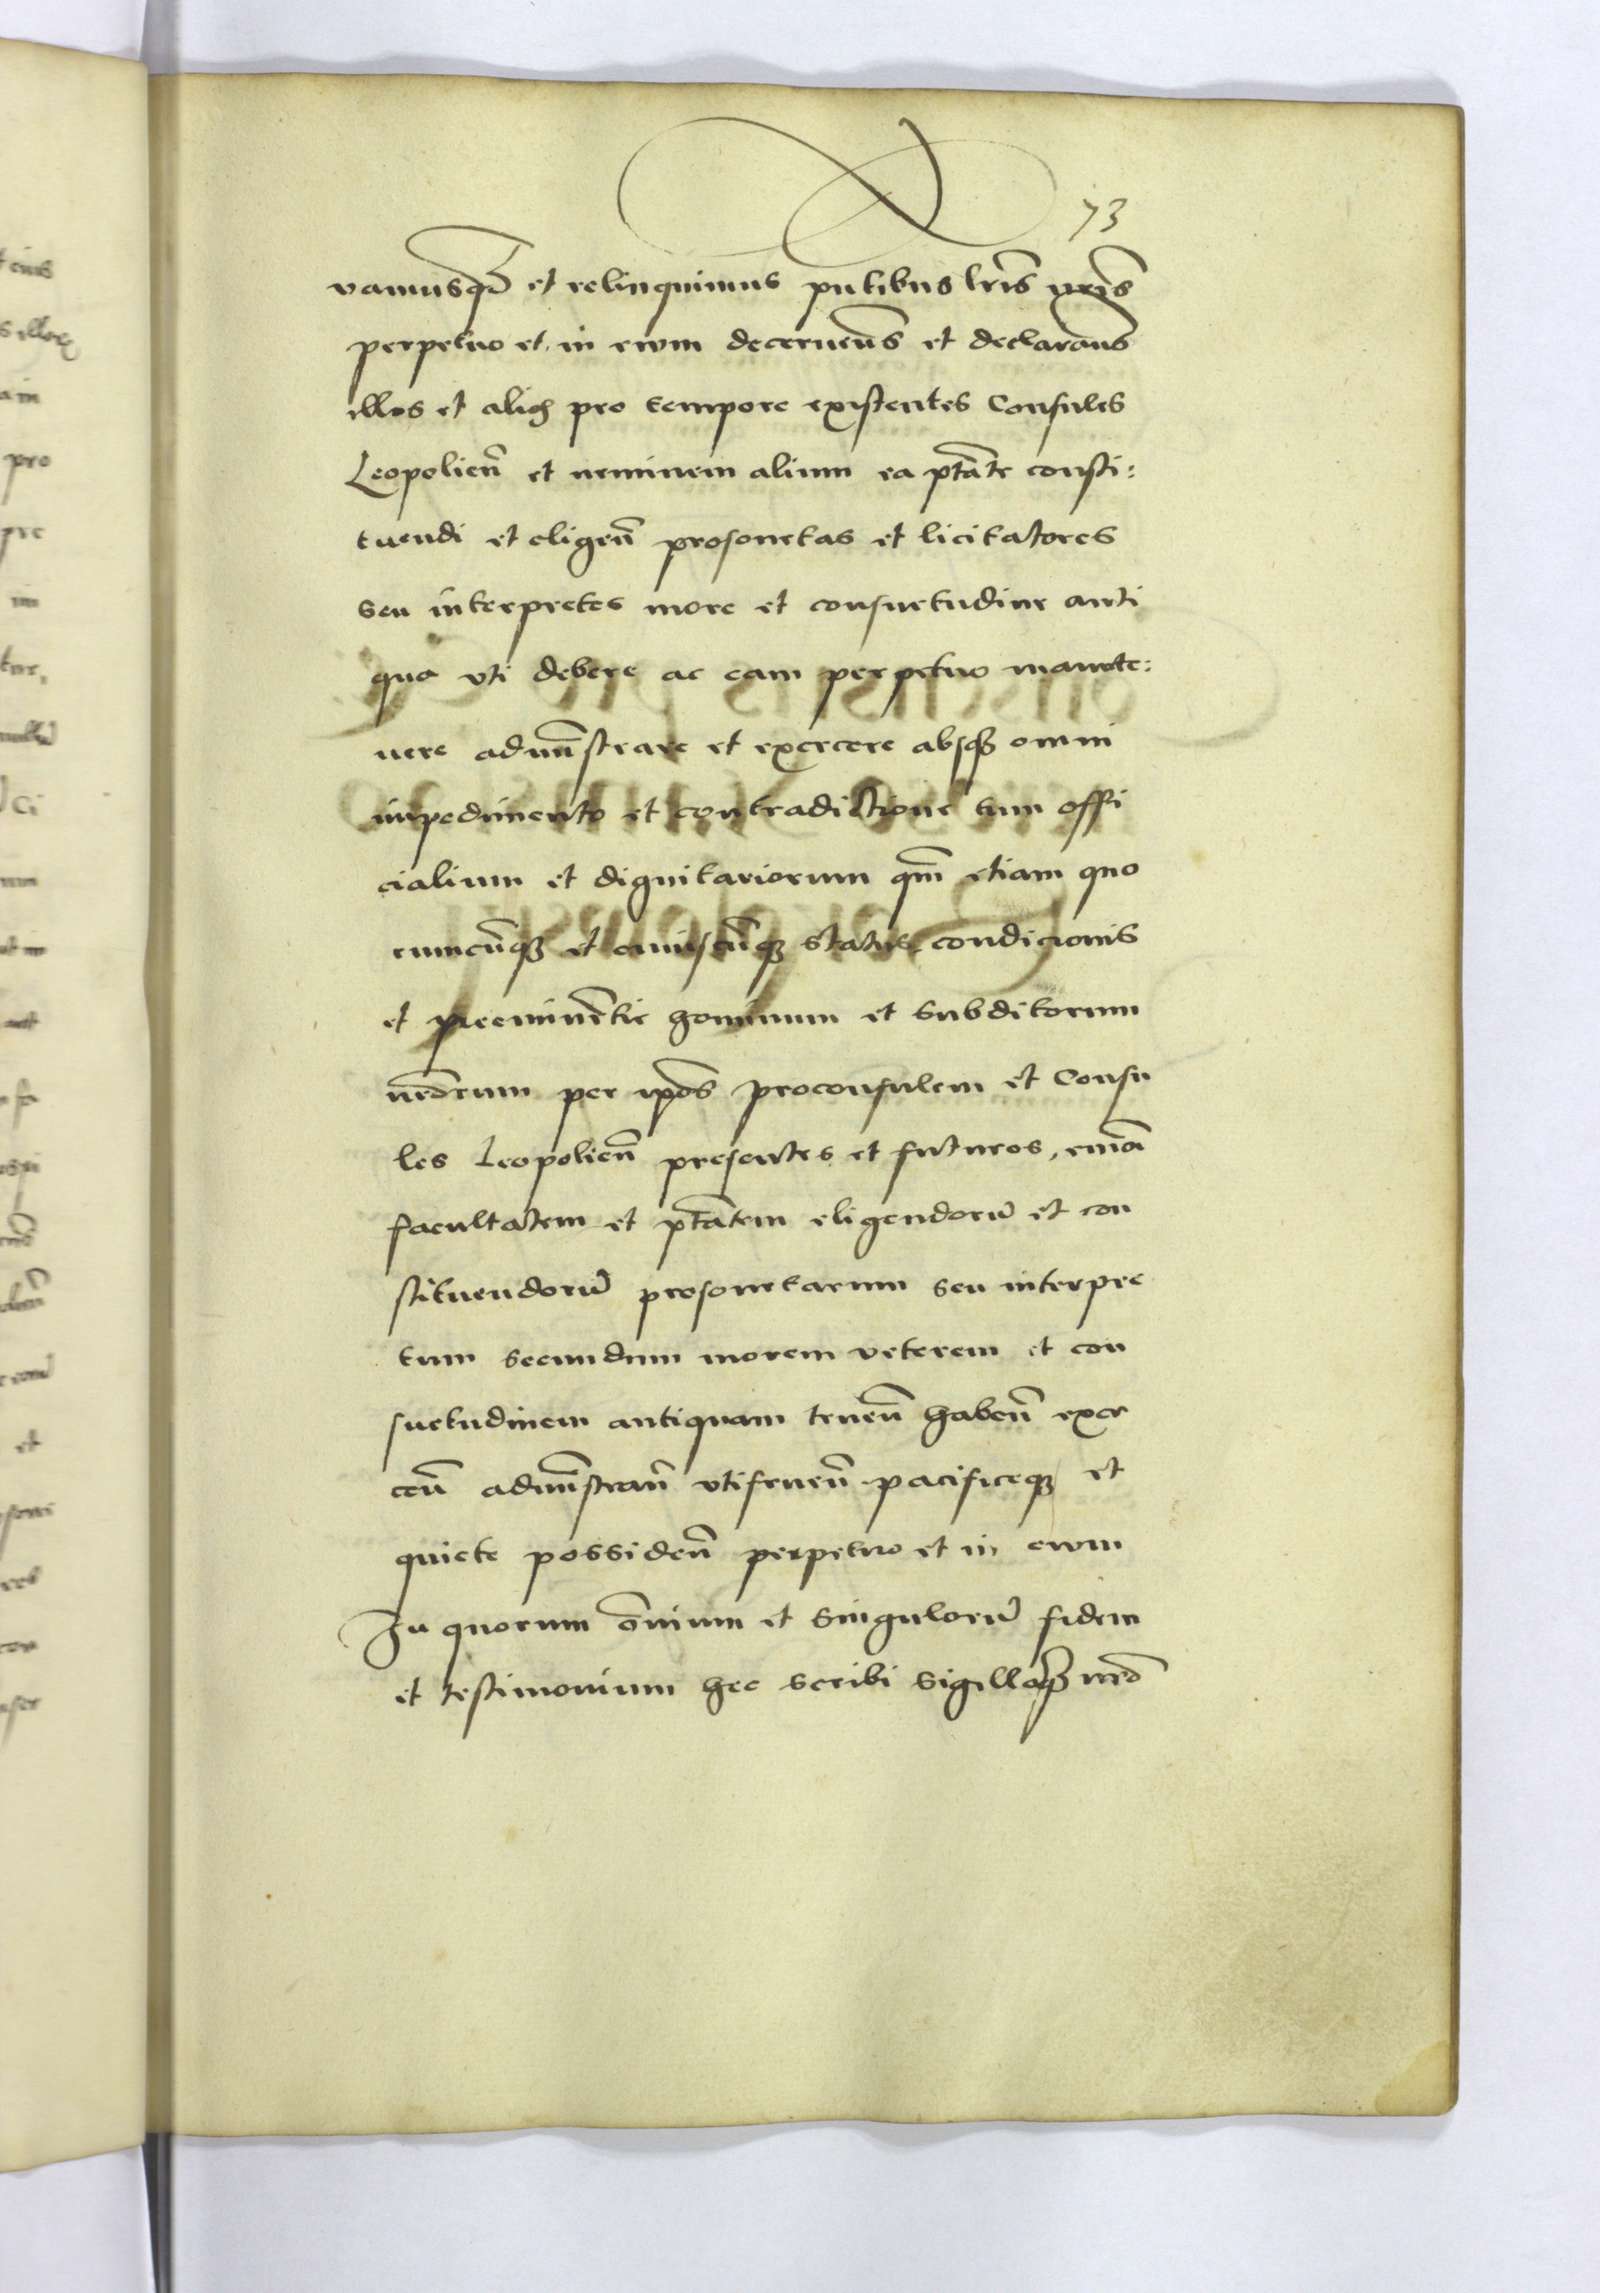 73
vamusq̃ et relinquimus pntibus lr̃is nr̃is
perpetuo et in evum decernen̄s et declaran̄s
illos et alios pro tempore existentes Consules
Leopolien̄ et neminem alium ea ptāte consti:
tuendi et eligen̄ prosonetas et licitatores
seu interpretes more et consuetudine anti
qua vti debere ac eam perpetuo manute:
nere adm̄nstrare et exercere absq₃ omni
impedimento et contradictione tum offi
cialium et dignitariorum qm̄ etiam quo
rumcūq₃ et cuiuscūq₃ status condicionis
et preeminētie hominum et subditorum
nr̄orum per ip̄os proconsulem et Consu
les Leopolien̄ presentes et futuros,
facultatem et ptātem eligendorū et con
stituendorū prosonetarum seu interpre
tum secundum morem veterem et con
suetudinem antiquam tenen̄ haben̄ exer
cen̄ adm̄nstran̄ vtifruen̄ pacificeq₃ et
quiete possiden̄ perpetuo et in evum
In quorum om̄ium et singulorū fidem
et testimonium hec scribi sigilloq₃ nr̄o